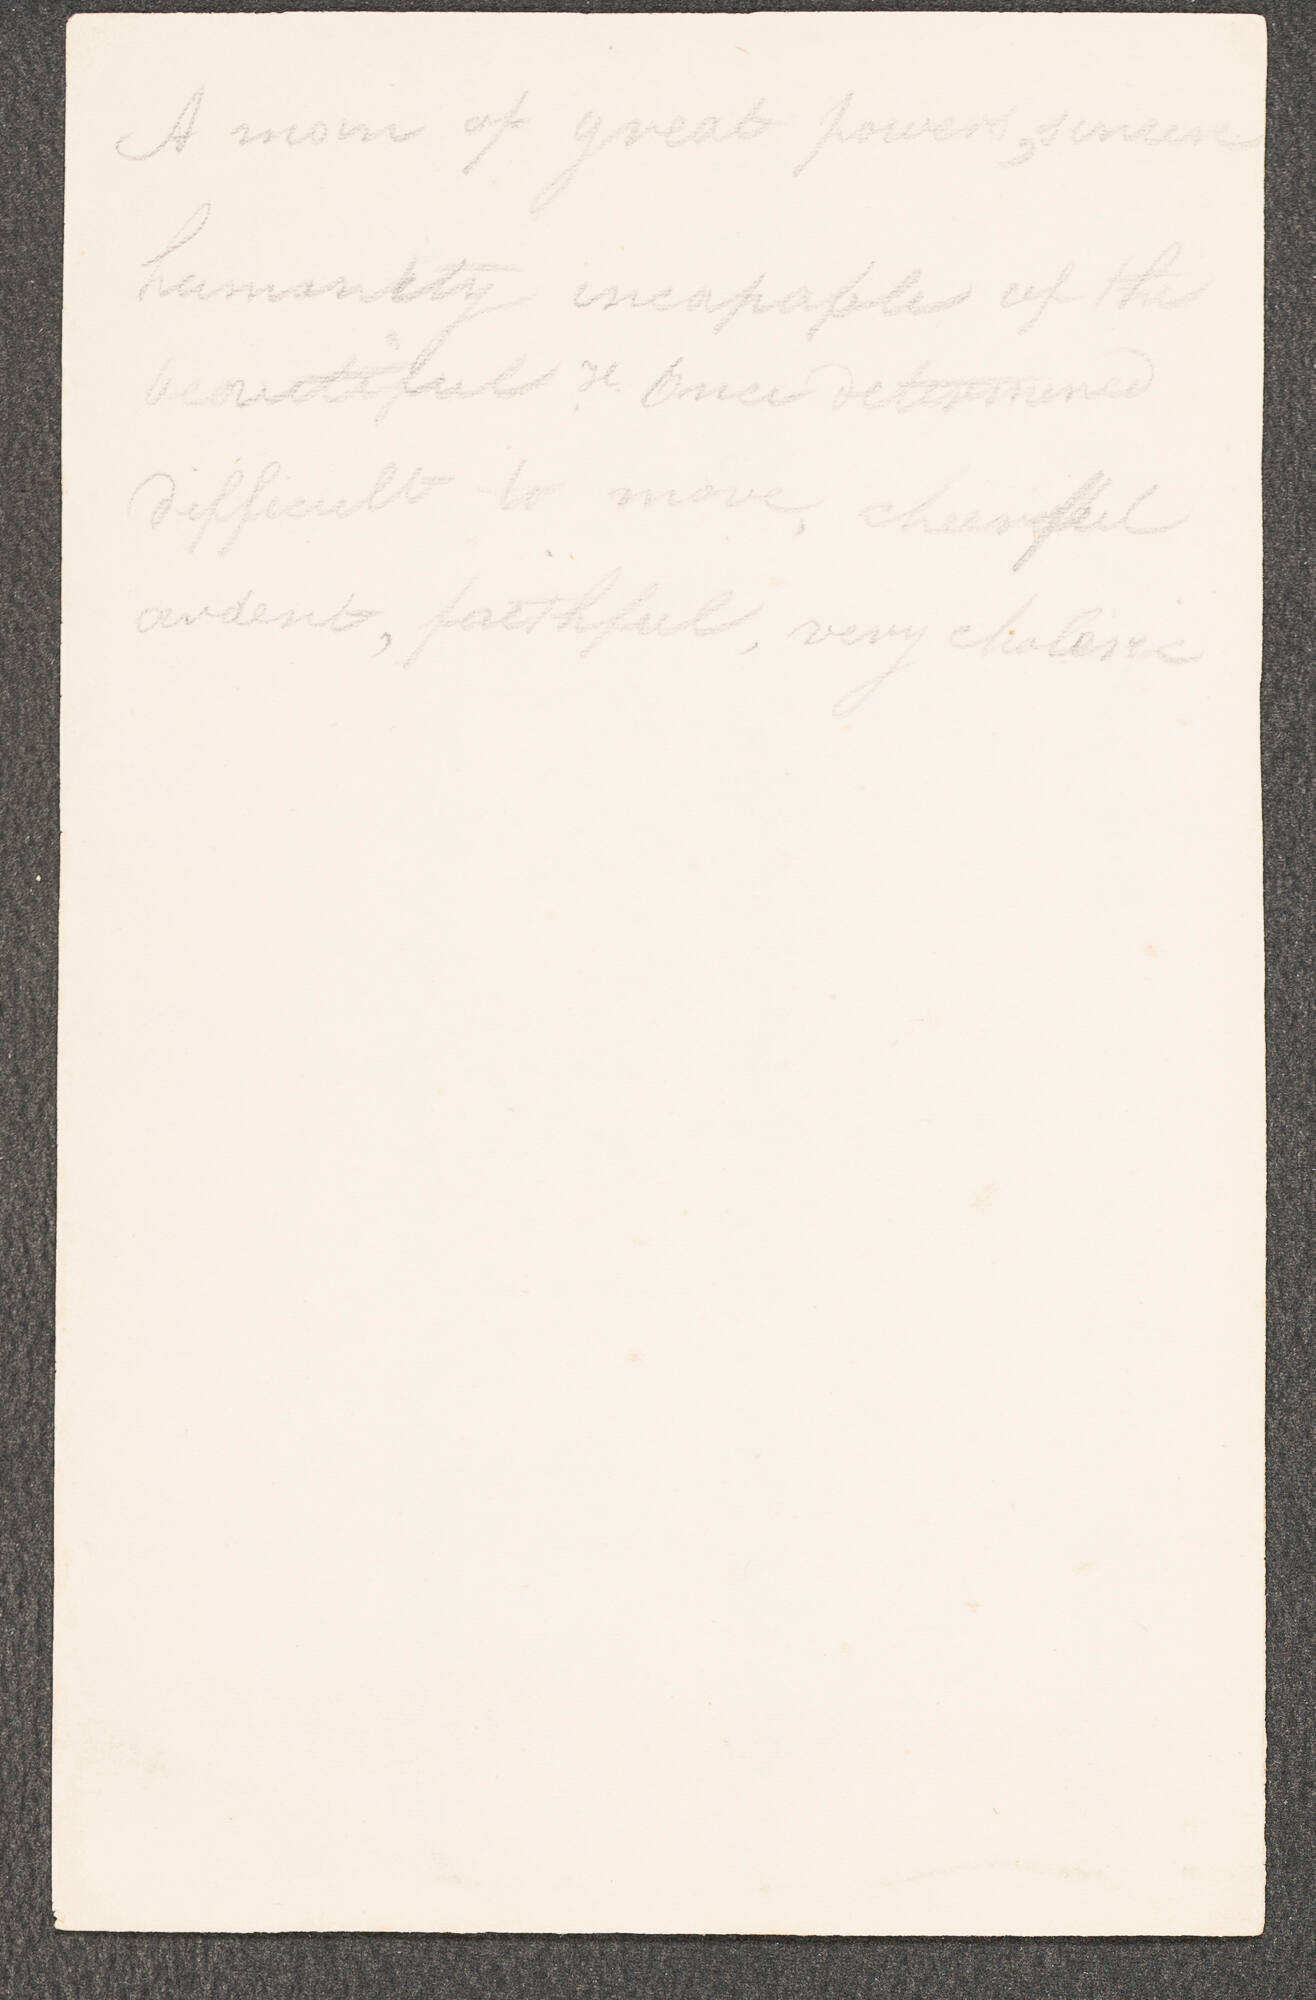 A man of great powers, sincere
humanity incapable of the
beautiful & Once determined
difficult to move, cheerful
ardent, faithful, very choleric